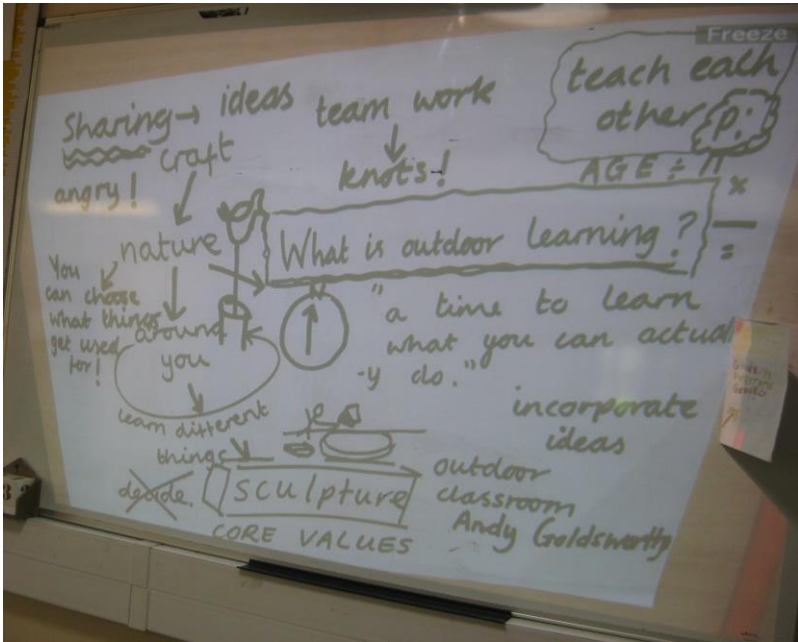 Freeze
Sharing → ideas
craft
angry!
team work
knots!
teach each
other p:
AGE ÷
x
=
What is outdoor learning?
nature
You
can choose
what things
get used
for!
around
you
"a time to learn
what you can actual
-y do."
learn different
things
incorporate
ideas
decide.
sculpture
outdoor
classroom
Andy Goldsworthy
CORE VALUES